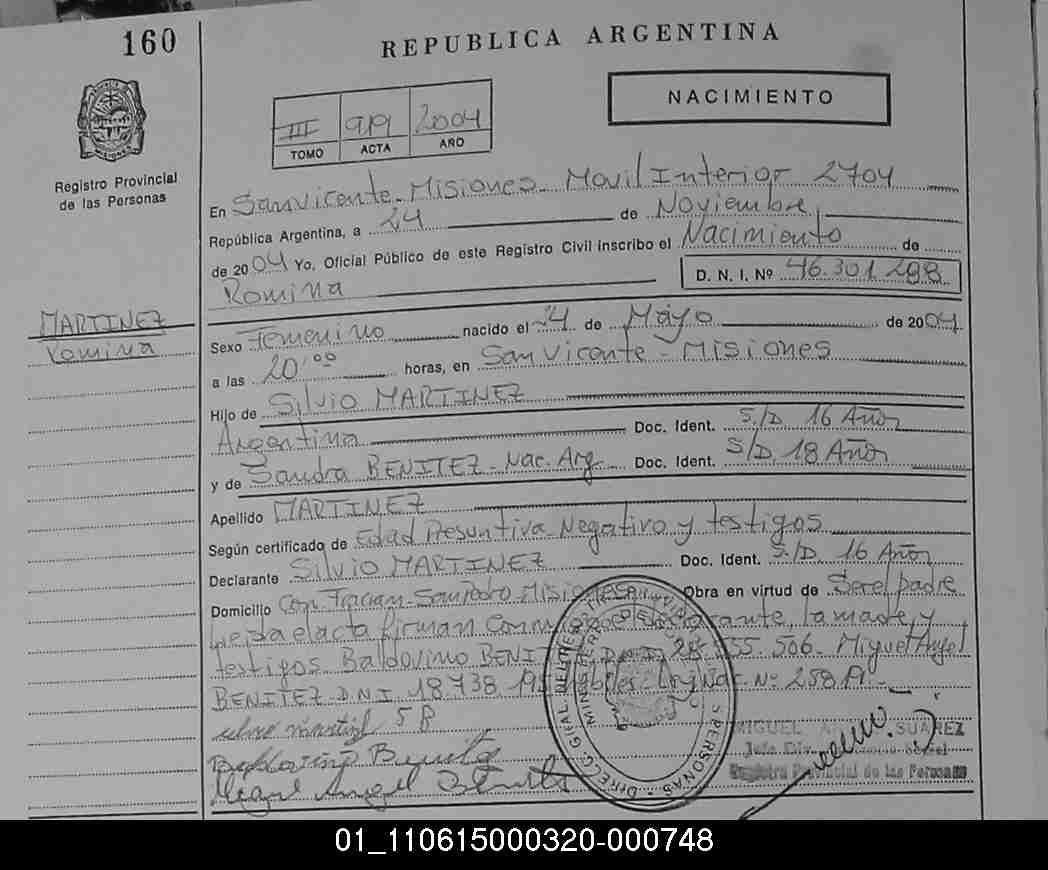 160
REPUBLICA ARGENTINA
NACIMIENTO
III 919 2004
TOMO ACTA AÑO
Registro Provincial
de las Personas
En San Vicente - Misiones - Movil Interior 2704
República Argentina, a 24 de Noviembre
de 2004 Yo, Oficial Público de este Registro Civil inscribo el Nacimiento de
Romina D. N. I. Nº 46.301.298
MARTINEZ
Romina
Sexo Femenino nacido el 24 de Mayo de 2004
a las 20'00 horas, en San Vicente - Misiones
Hijo de Silvio MARTINEZ
Argentina Doc. Ident. S/D. 16 Años
y de Sandra BENITEZ - Nac. Arg. Doc. Ident. S/D. 18 Años
Apellido MARTINEZ
Según certificado de Edad Presuntiva Negativo y testigos
Declarante Silvio MARTINEZ Doc. Ident. S/D. 16 Años
Domicilio San Pedro Misiones Obra en virtud de Ser el padre
Leida el acta firman la madre y
testigos Baldovino BENITEZ D.N.I. 28. 506. Miguel Angel
BENITEZ D.N.I. 18.738. Nº 258
Miguel Angel Benitez
MIGUEL SUAREZ
Registro Provincial de las Personas
01_110615000320-000748